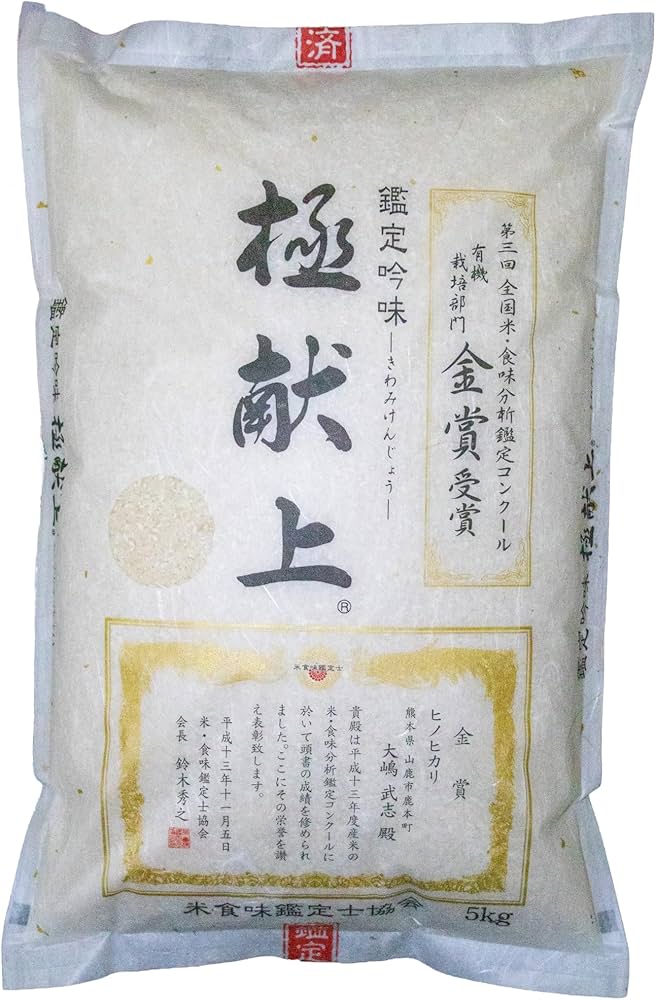 済
第三回 全国米・食味分析鑑定コンクール
有機
栽培部門
金賞受賞
鑑定吟味
―きわみけんじょう―
極献上
®
鑑定吟味 極献上
極献上
米食味鑑定士
金賞
ヒノヒカリ
熊本県 山鹿市鹿本町
大嶋 武志 殿
貴殿は平成十三年度産米の
米・食味分析鑑定コンクールに
於いて頭書の成績を修められ
ました。ここにその栄誉を讃
え表彰致します。
平成十三年十一月五日
米・食味鑑定士協会
会長 鈴木秀之
米食味鑑定士協会
5kg
鑑定